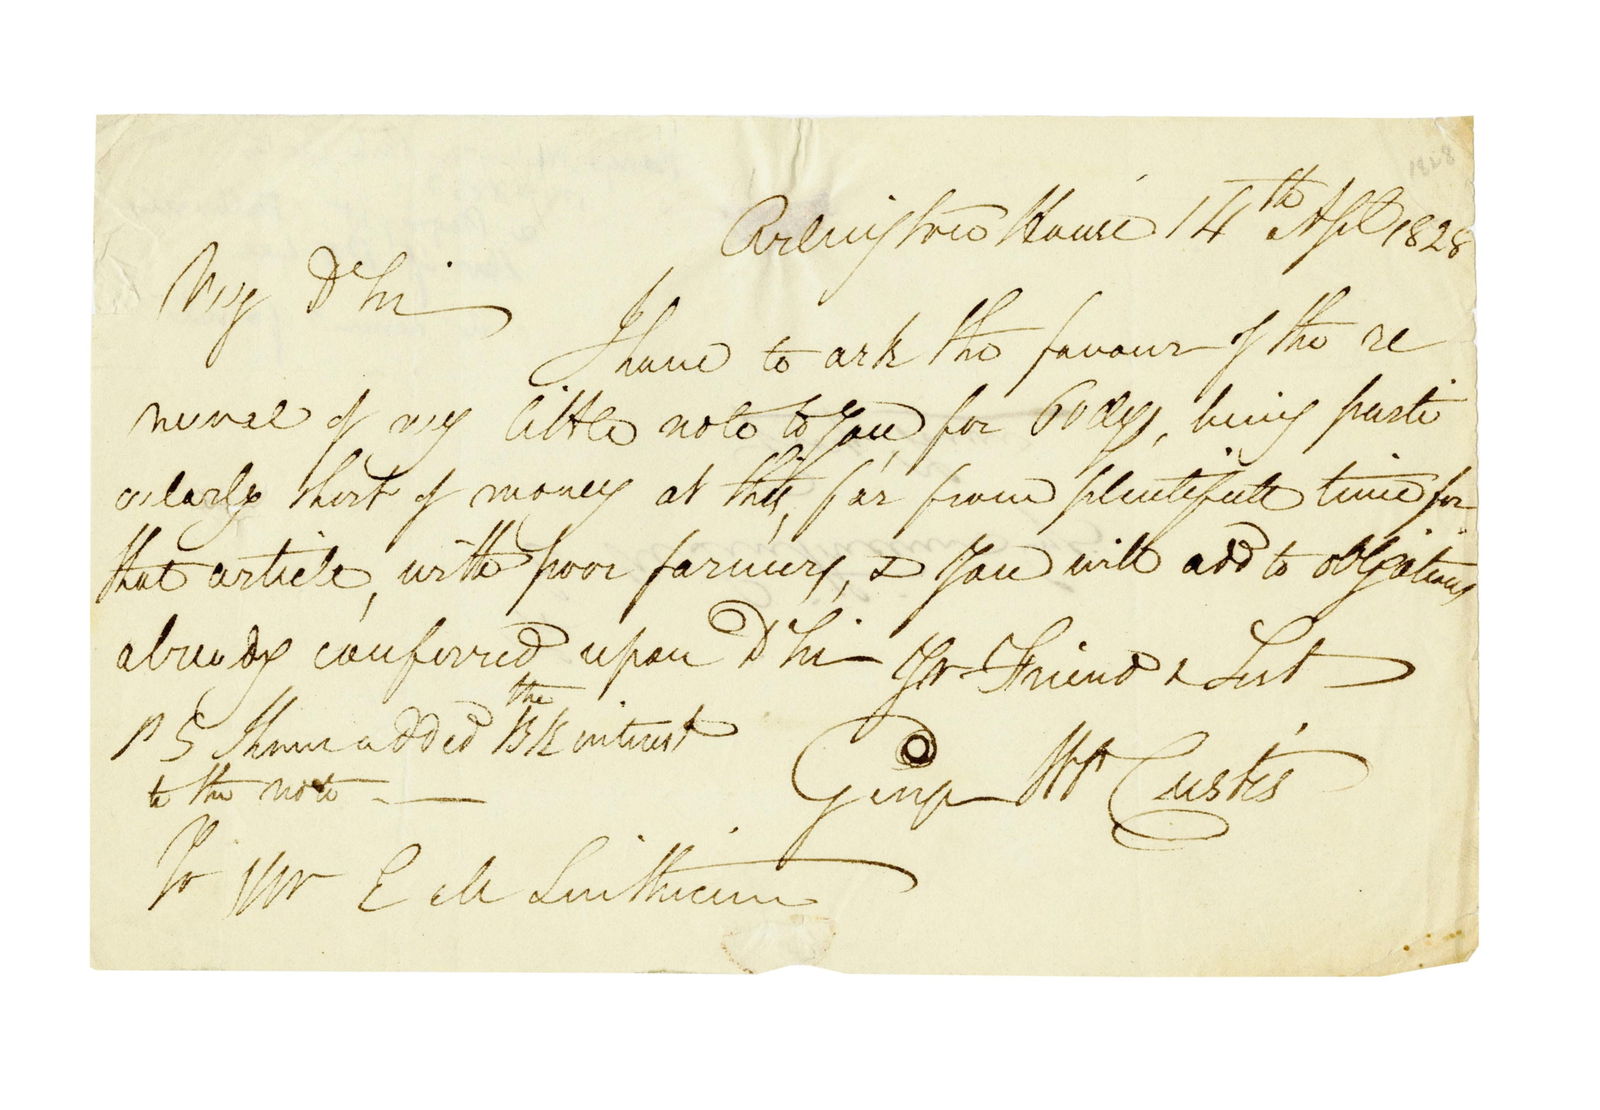 1828
Arlington House 14th Apl 1828
My Dr Sir
I have to ask the favour of the re
newal of my little note to You, for 60 dys, being parti
cularly short of money at this, far from plentifull time for
that article, with poor farmers, & You will add to obligations
already conferred upon Dr Sir Yr Friend & Sert
P S I have added the Bk interest
to the note
George W P Custis
To Mr E M Linthicum